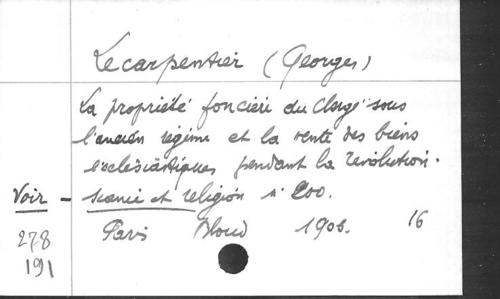 Lecarpentier (Georges)
La propriété foncière du Clergé sous
l'ancien régime et la vente des biens
ecclésiastiques pendant la révolution.
Voir - science et religion n° 200.
278 Paris Bloud 1906. 16
191